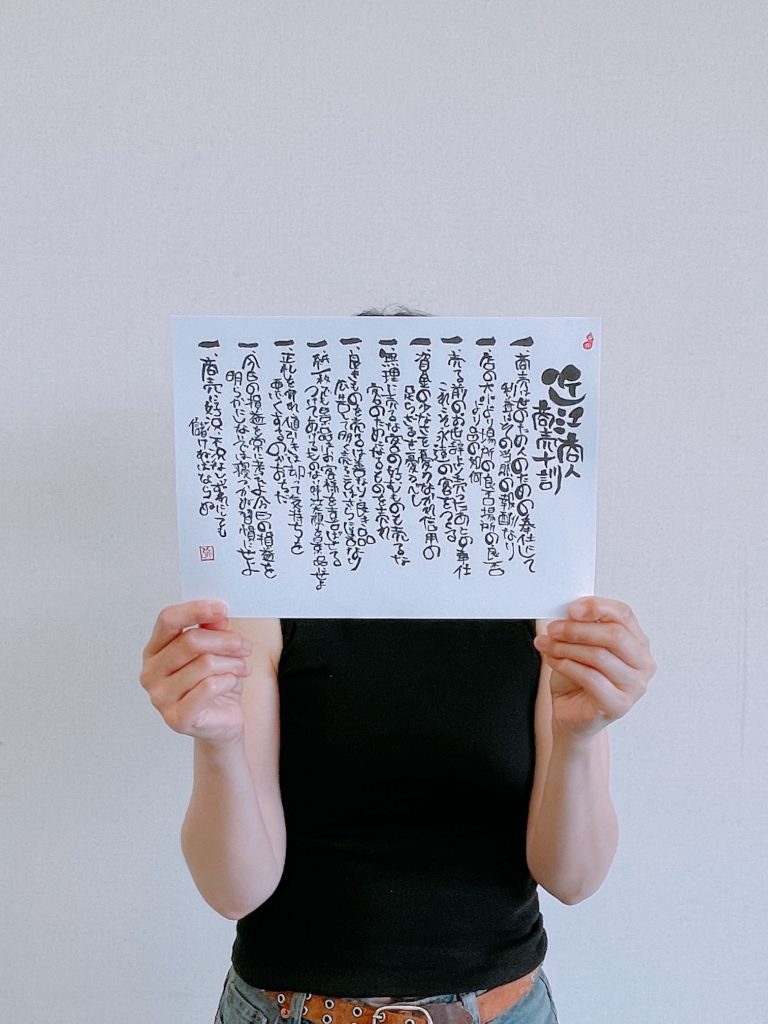 近江商人
商売十訓
一、商売は世のため人のための奉仕にして
利益はその当然の報酬なり
一、店の大小より場所の良否場所の良否
より品の如何
一、売る前のお世辞より売ったあとの奉仕
これこそ永遠の客をつくる
一、資金の少なさを憂うなかれ信用の
足らざるを憂うべし
一、無理に売るな客の好むものも売るな
客のためになるものを売れ
一、良きものを売るは善なり良き品を
広告して多く売ることはさらに善なり
一、紙一枚でも景品はお客様を喜ばせる
つけてあげるものない時笑顔を景品にせよ
一、正札を守れ値引きは却って気持ちを
悪くするのがおちだ
一、今日の損益を常に考えよ今日の損益を
明らかにしないでは寝につかぬ習慣にせよ
一、商売に好況不況なしいずれにしても
儲けねばならぬ